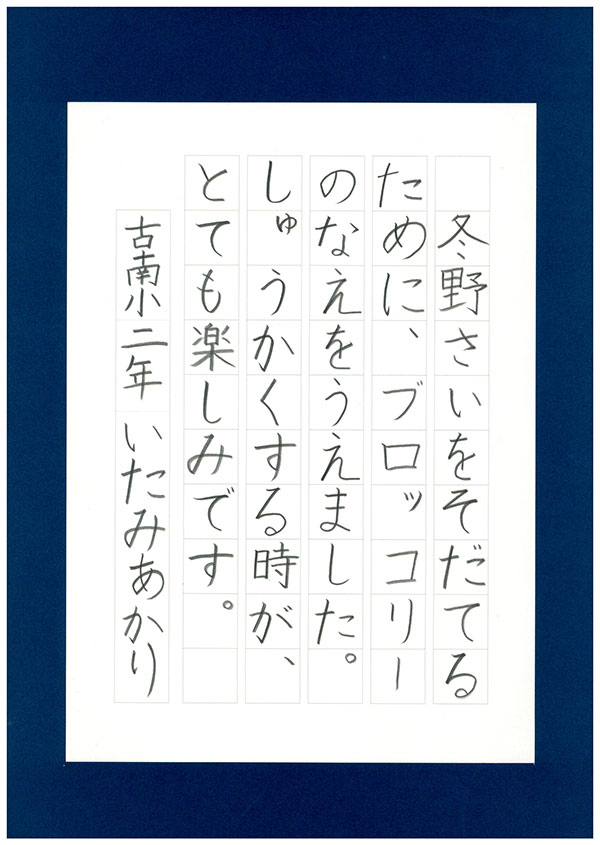 冬野さいをそだてる
ために、ブロッコリー
のなえをうえました。
しゅうかくする時が、
とても楽しみです。
古南小二年　いたみあかり